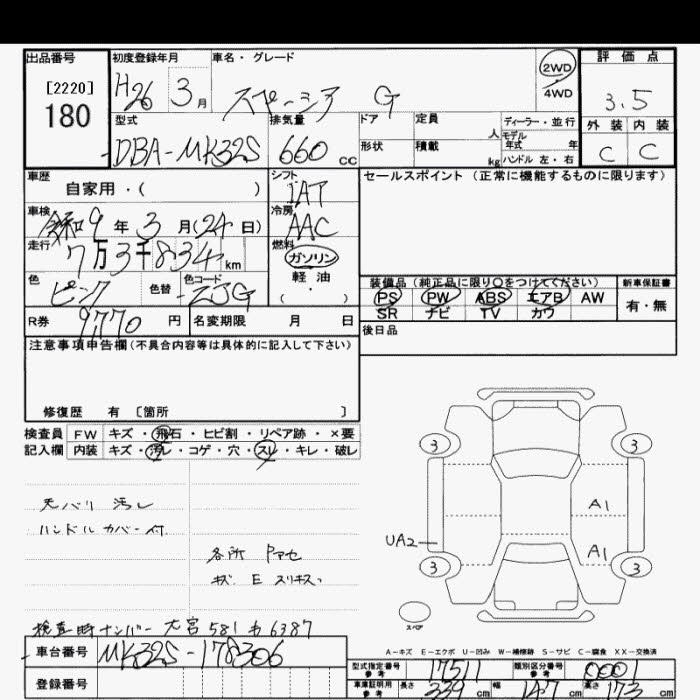 出品番号
[2220]
180
初度登録年月
H26 3月
車名・グレード
スペーシア G
2WD
4WD
評価点
3.5
外装 内装
C C
型式
DBA-MK32S
排気量
660 cc
ドア
定員
人
ディーラー・並行
モデル年式 年
形状
積載
kg
ハンドル 左・右
車歴
自家用・( )
シフト
IAT
セールスポイント (正常に機能するものに限ります)
車検
令和9年3月(24日)
冷房
AAC
走行
7万3千834km
燃料
ガソリン
軽油
・
( )
色
ピンク
色替
色コード
ZJG
装備品 (純正品に限り○をつけてください)
PS PW ABS エアB AW
SR ナビ TV カワ
新車保証書
有・無
R券
9770円
名変期限 月 日
後日品
注意事項申告欄(不具合内容等は具体的に記入して下さい)
修復歴 有 〔箇所 〕
検査員 FW キズ・飛石・ヒビ割・リペア跡・×要
記入欄 内装 キズ・汚レ・コゲ・穴・スレ・キレ・破レ
天バリ 汚レ
ハンドルカバー付
各所
キズ E スリキズ
3 3
A1
UA2
A1
3 3
スペア
検査時ナンバー 大宮 581 も 6387
A-キズ E-エクボ U-凹み W-補修跡 S-サビ C-腐食 XX-交換済
車台番号
MK32S-178306
登録番号
型式指定番号
参考
17511
類別区分番号
参考
0001
車庫証明用
参考
長さ 339 cm
幅 147 cm
高さ 173 cm